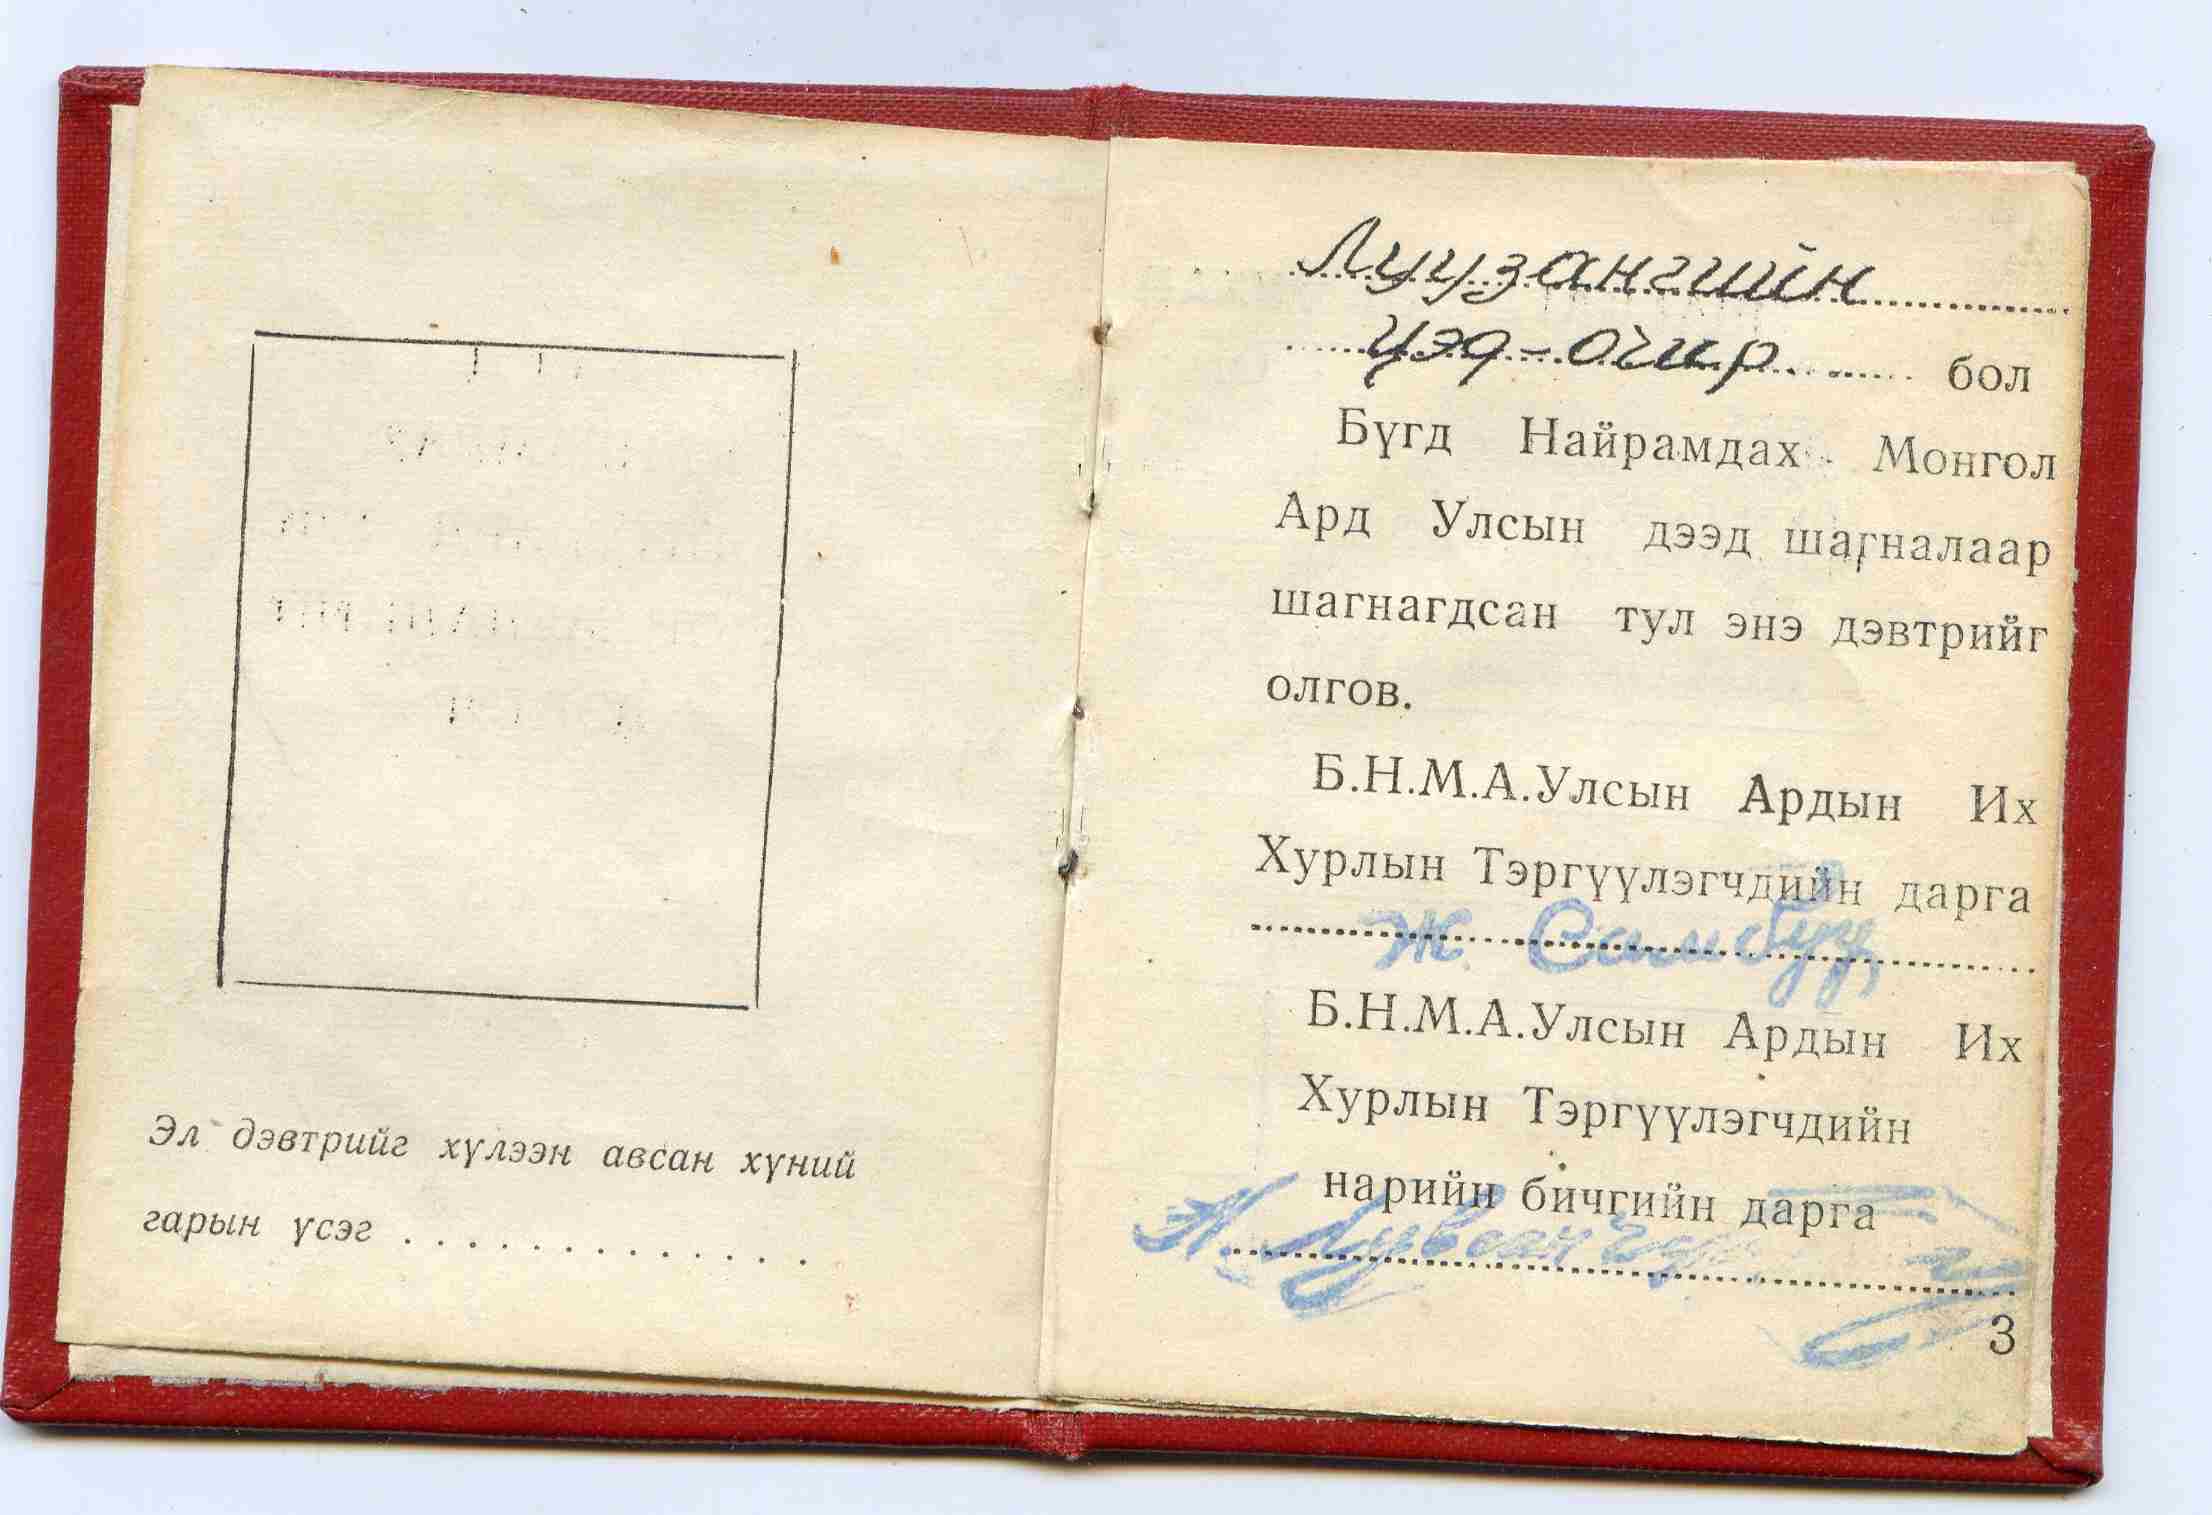 Эл дэвтрийг хүлээн авсан хүний
гарын үсэг . . . . . . . . . . . . .
Луузангийн
Цэд-Очир бол
Бүгд Найрамдах Монгол
Ард Улсын дээд шагналаар
шагнагдсан тул энэ дэвтрийг
олгов.
Б.Н.М.А.Улсын Ардын Их
Хурлын Тэргүүлэгчдийн дарга
Ж. Самбуу
Б.Н.М.А.Улсын Ардын Их
Хурлын Тэргүүлэгчдийн
нарийн бичгийн дарга
3